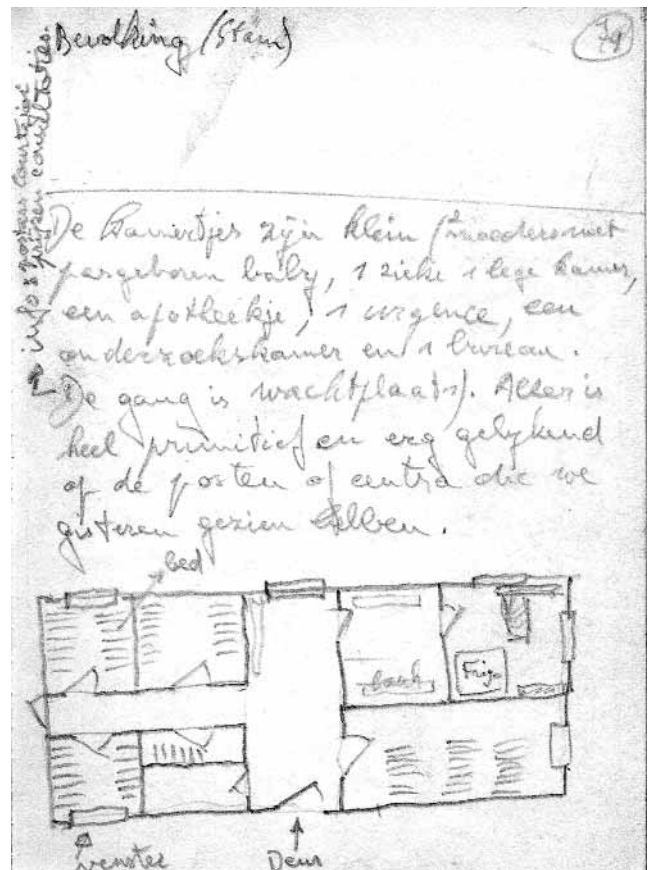 Bevolking (Stam)
79
De kamertjes zijn klein (2 moeders met
pasgeboren baby, 1 zieke 1 lege kamer,
een apotheekje, 1 urgence, een
onderzoekskamer en 1 bureau.
De gang is wachtplaats). Alles is
heel primitief en erg gelijkend
op de posten of centra die we
gisteren gezien hebben.
bed
bank
Frigo
venster
Deur